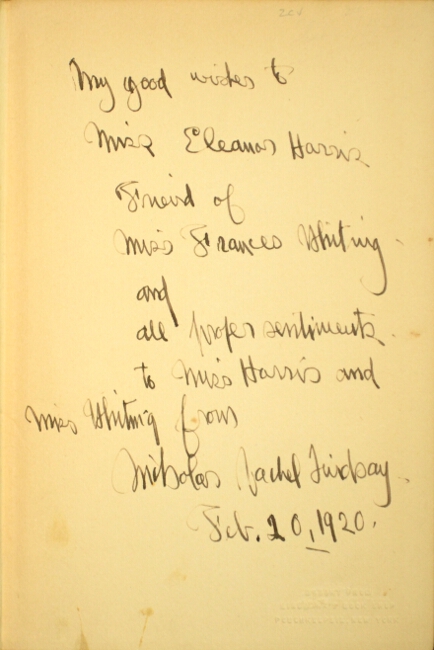 My good wishes to
Miss Eleanor Harris
Friend of
Miss Frances Whiting
and
all proper sentiments
to Miss Harris and
Miss Whiting from
Nicholas Vachel Lindsay.
Feb. 20, 1920.